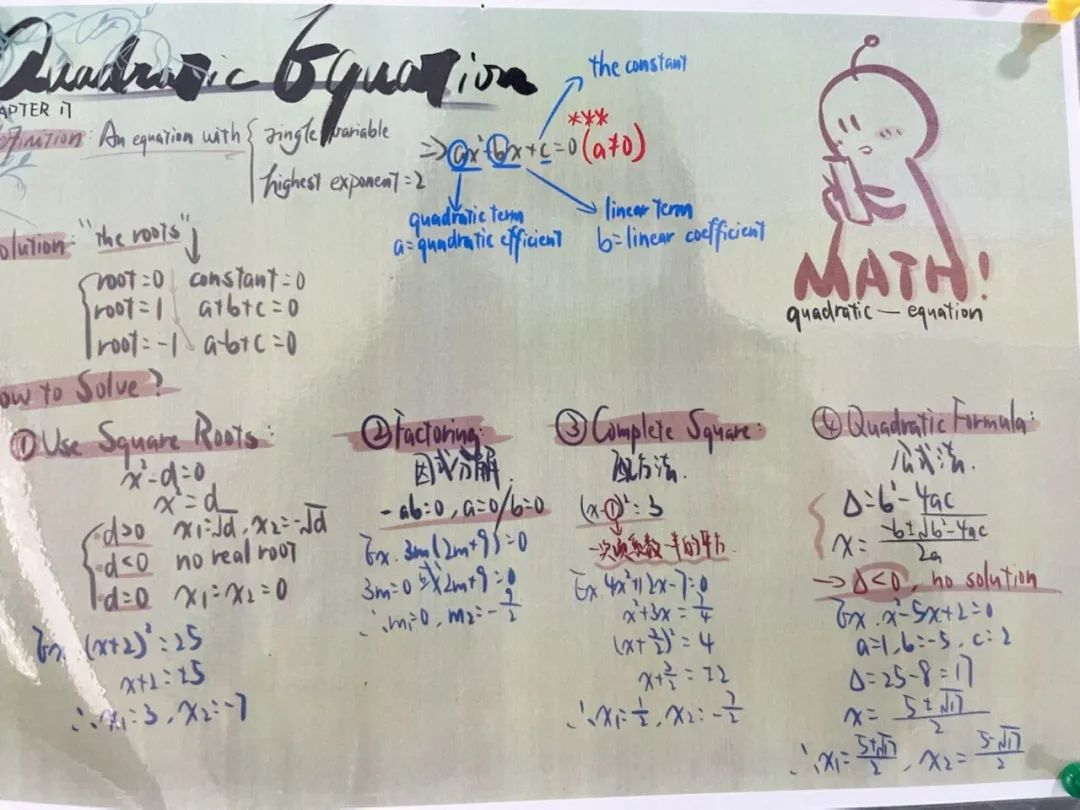 Quadratic Equation
APTER 17
efinition: An equation with { single variable
highest exponent=2
⇒ ax²+bx+c=0 (a≠0)
***
the constant
quadratic term
a=quadratic efficient
linear term
b=linear coefficient
MATH!
quadratic — equation
olution: "the roots"
root=0 constant=0
root=1 a+b+c=0
root=-1 a-b+c=0
ow to Solve?
① Use Square Roots:
x²-d=0
x²=d
d>0 x₁=√d, x₂=-√d
d<0 no real root
d=0 x₁=x₂=0
Ex. (x+2)²=25
x+2=±5
∴x₁=3, x₂=-7
② Factoring:
因式分解
-ab=0, a=0/b=0
Ex. 3m(2m+9)=0
3m=0 或 2m+9=0
∴m₁=0, m₂=-9/2
③ Complete Square:
配方法.
(x-1)²=3
一次项系数一半的平方.
Ex. 4x²+12x-7=0
x²+3x=7/4
(x+3/2)²=4
x+3/2=±2
∴x₁=1/2, x₂=-7/2
④ Quadratic Formula:
公式法.
Δ=b²-4ac
x=(-b±√b²-4ac)/2a
→Δ<0, no solution
Ex. x²-5x+2=0
a=1, b=-5, c=2
Δ=25-8=17
x=(5±√17)/2
∴x₁=(5+√17)/2, x₂=(5-√17)/2